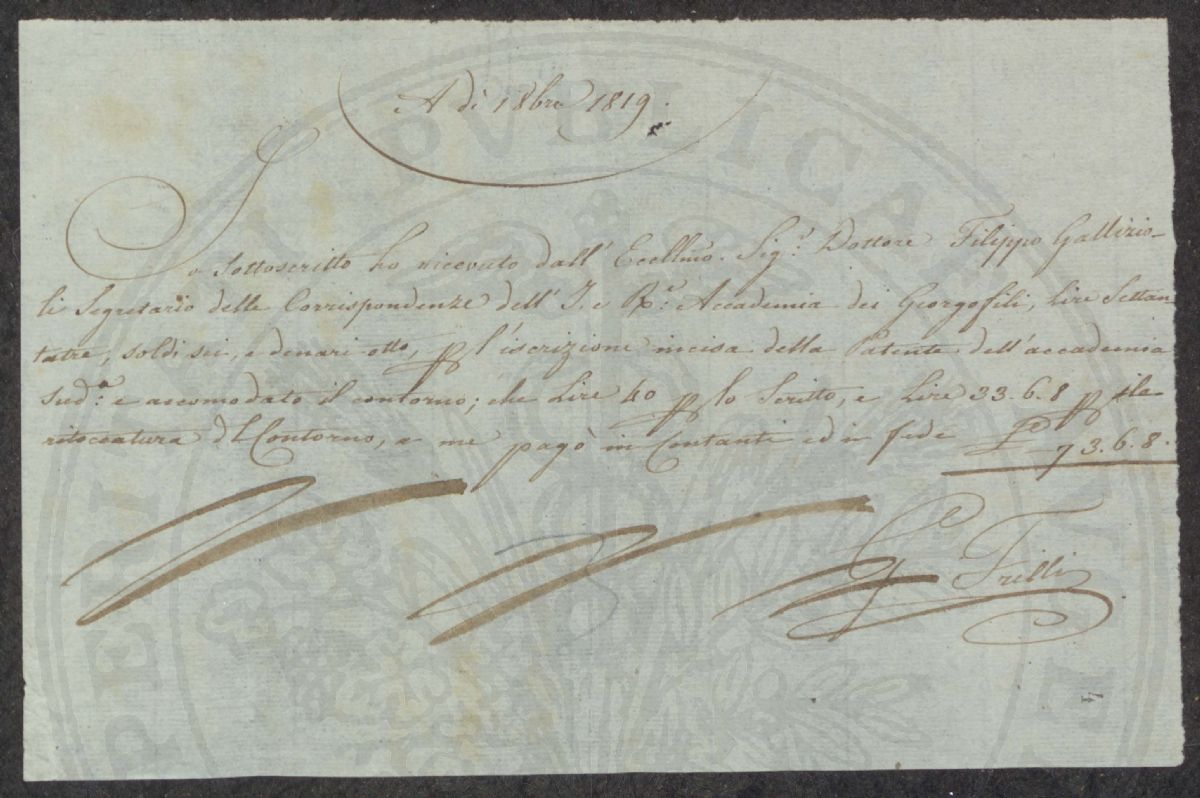 A dì 1 8bre 1819.
Io Sottoscritto ho ricevuto dall' Ecellmo. Sig.r Dottore Filippo Gallizio-
li Segretario delle Corrispondenze dell' I. e R.e Accademia dei Georgofili, Lire Settan-
tatre, soldi sei, e denari otto, p l'iscrizione incisa della Patente dell'accademia
sud.a e accomodato il contorno; che Lire 40 p lo Scritto, e Lire 33.6.8 p la
ritoccatura dl Contorno, a me pagò in Contanti ed in fede £ 73.6.8.
G Frilli
4
PVBLICA